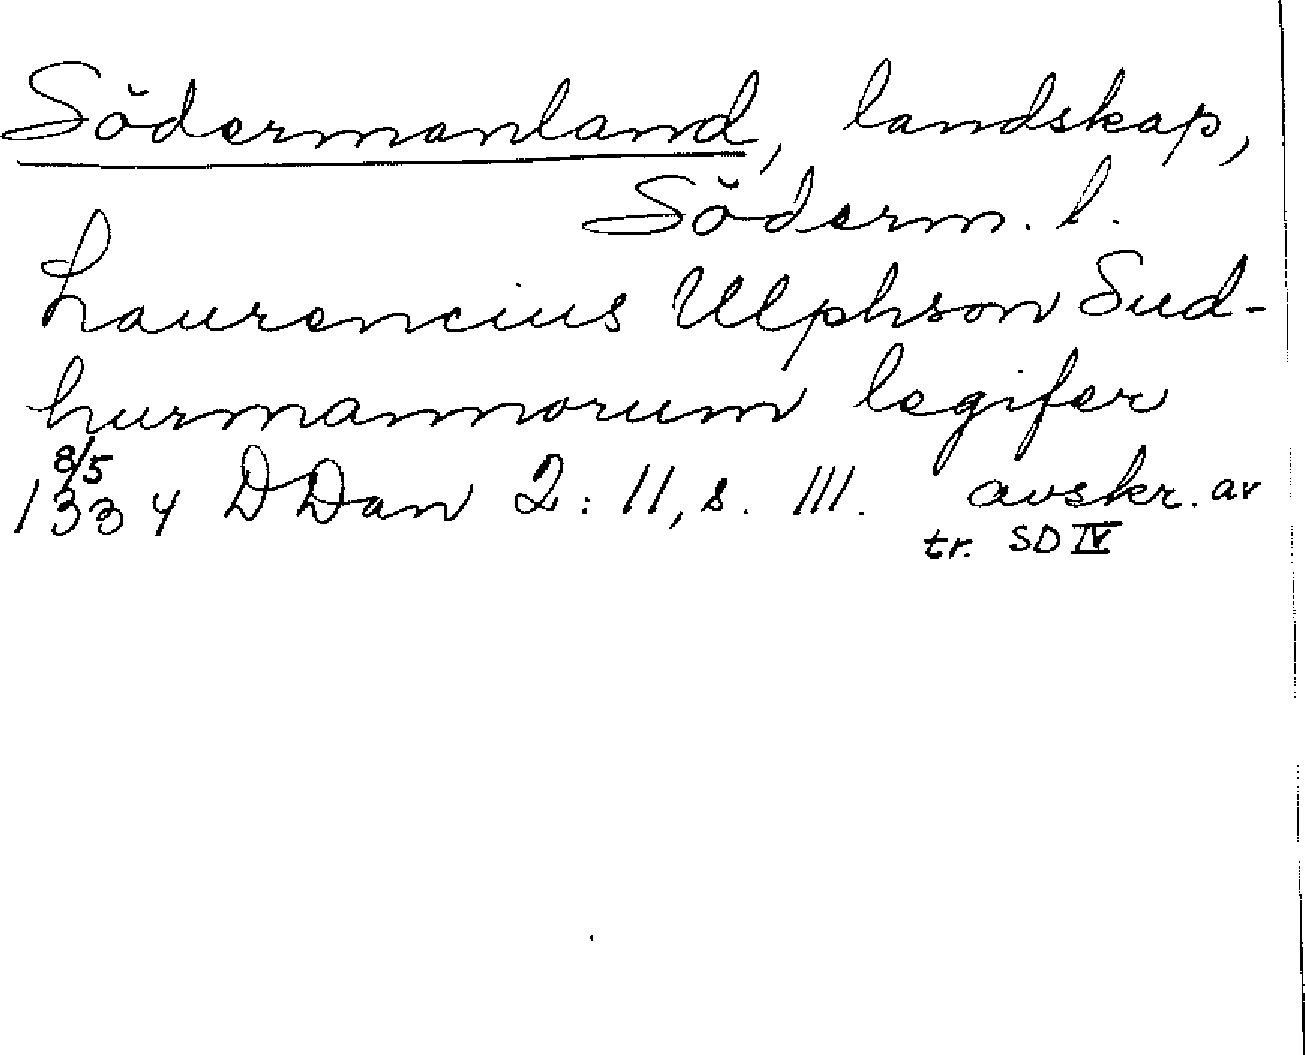 Södermanland, landskap,
Söderm. l.
Laurencius Ulphson Sud-
hurmannorum legifer
8/5
1334 DDan 2: 11, s. 111. avskr. av
tr. SD IV